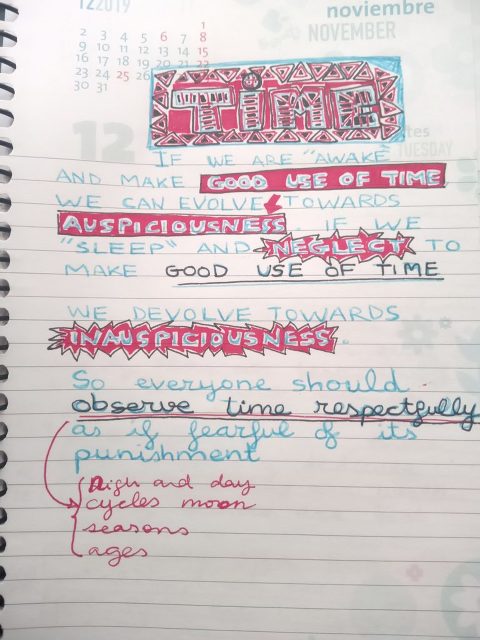 122019
noviembre
NOVEMBER
1
2 3 4 5 6 7 8
9 10 11 12 13 14 15
16 17 18 19 20 21 22
23 24 25 26
30 31
12
TUESDAY
TIME
IF WE ARE "AWAKE"
AND MAKE GOOD USE OF TIME
WE CAN EVOLVE TOWARDS
AUSPICIOUSNESS. IF WE
"SLEEP" AND NEGLECT TO
MAKE GOOD USE OF TIME
WE DEVOLVE TOWARDS
INAUSPICIOUSNESS.
So everyone should
observe time respectfully
as if fearful of its
punishment
nigh and day
cycles moon
seasons
ages